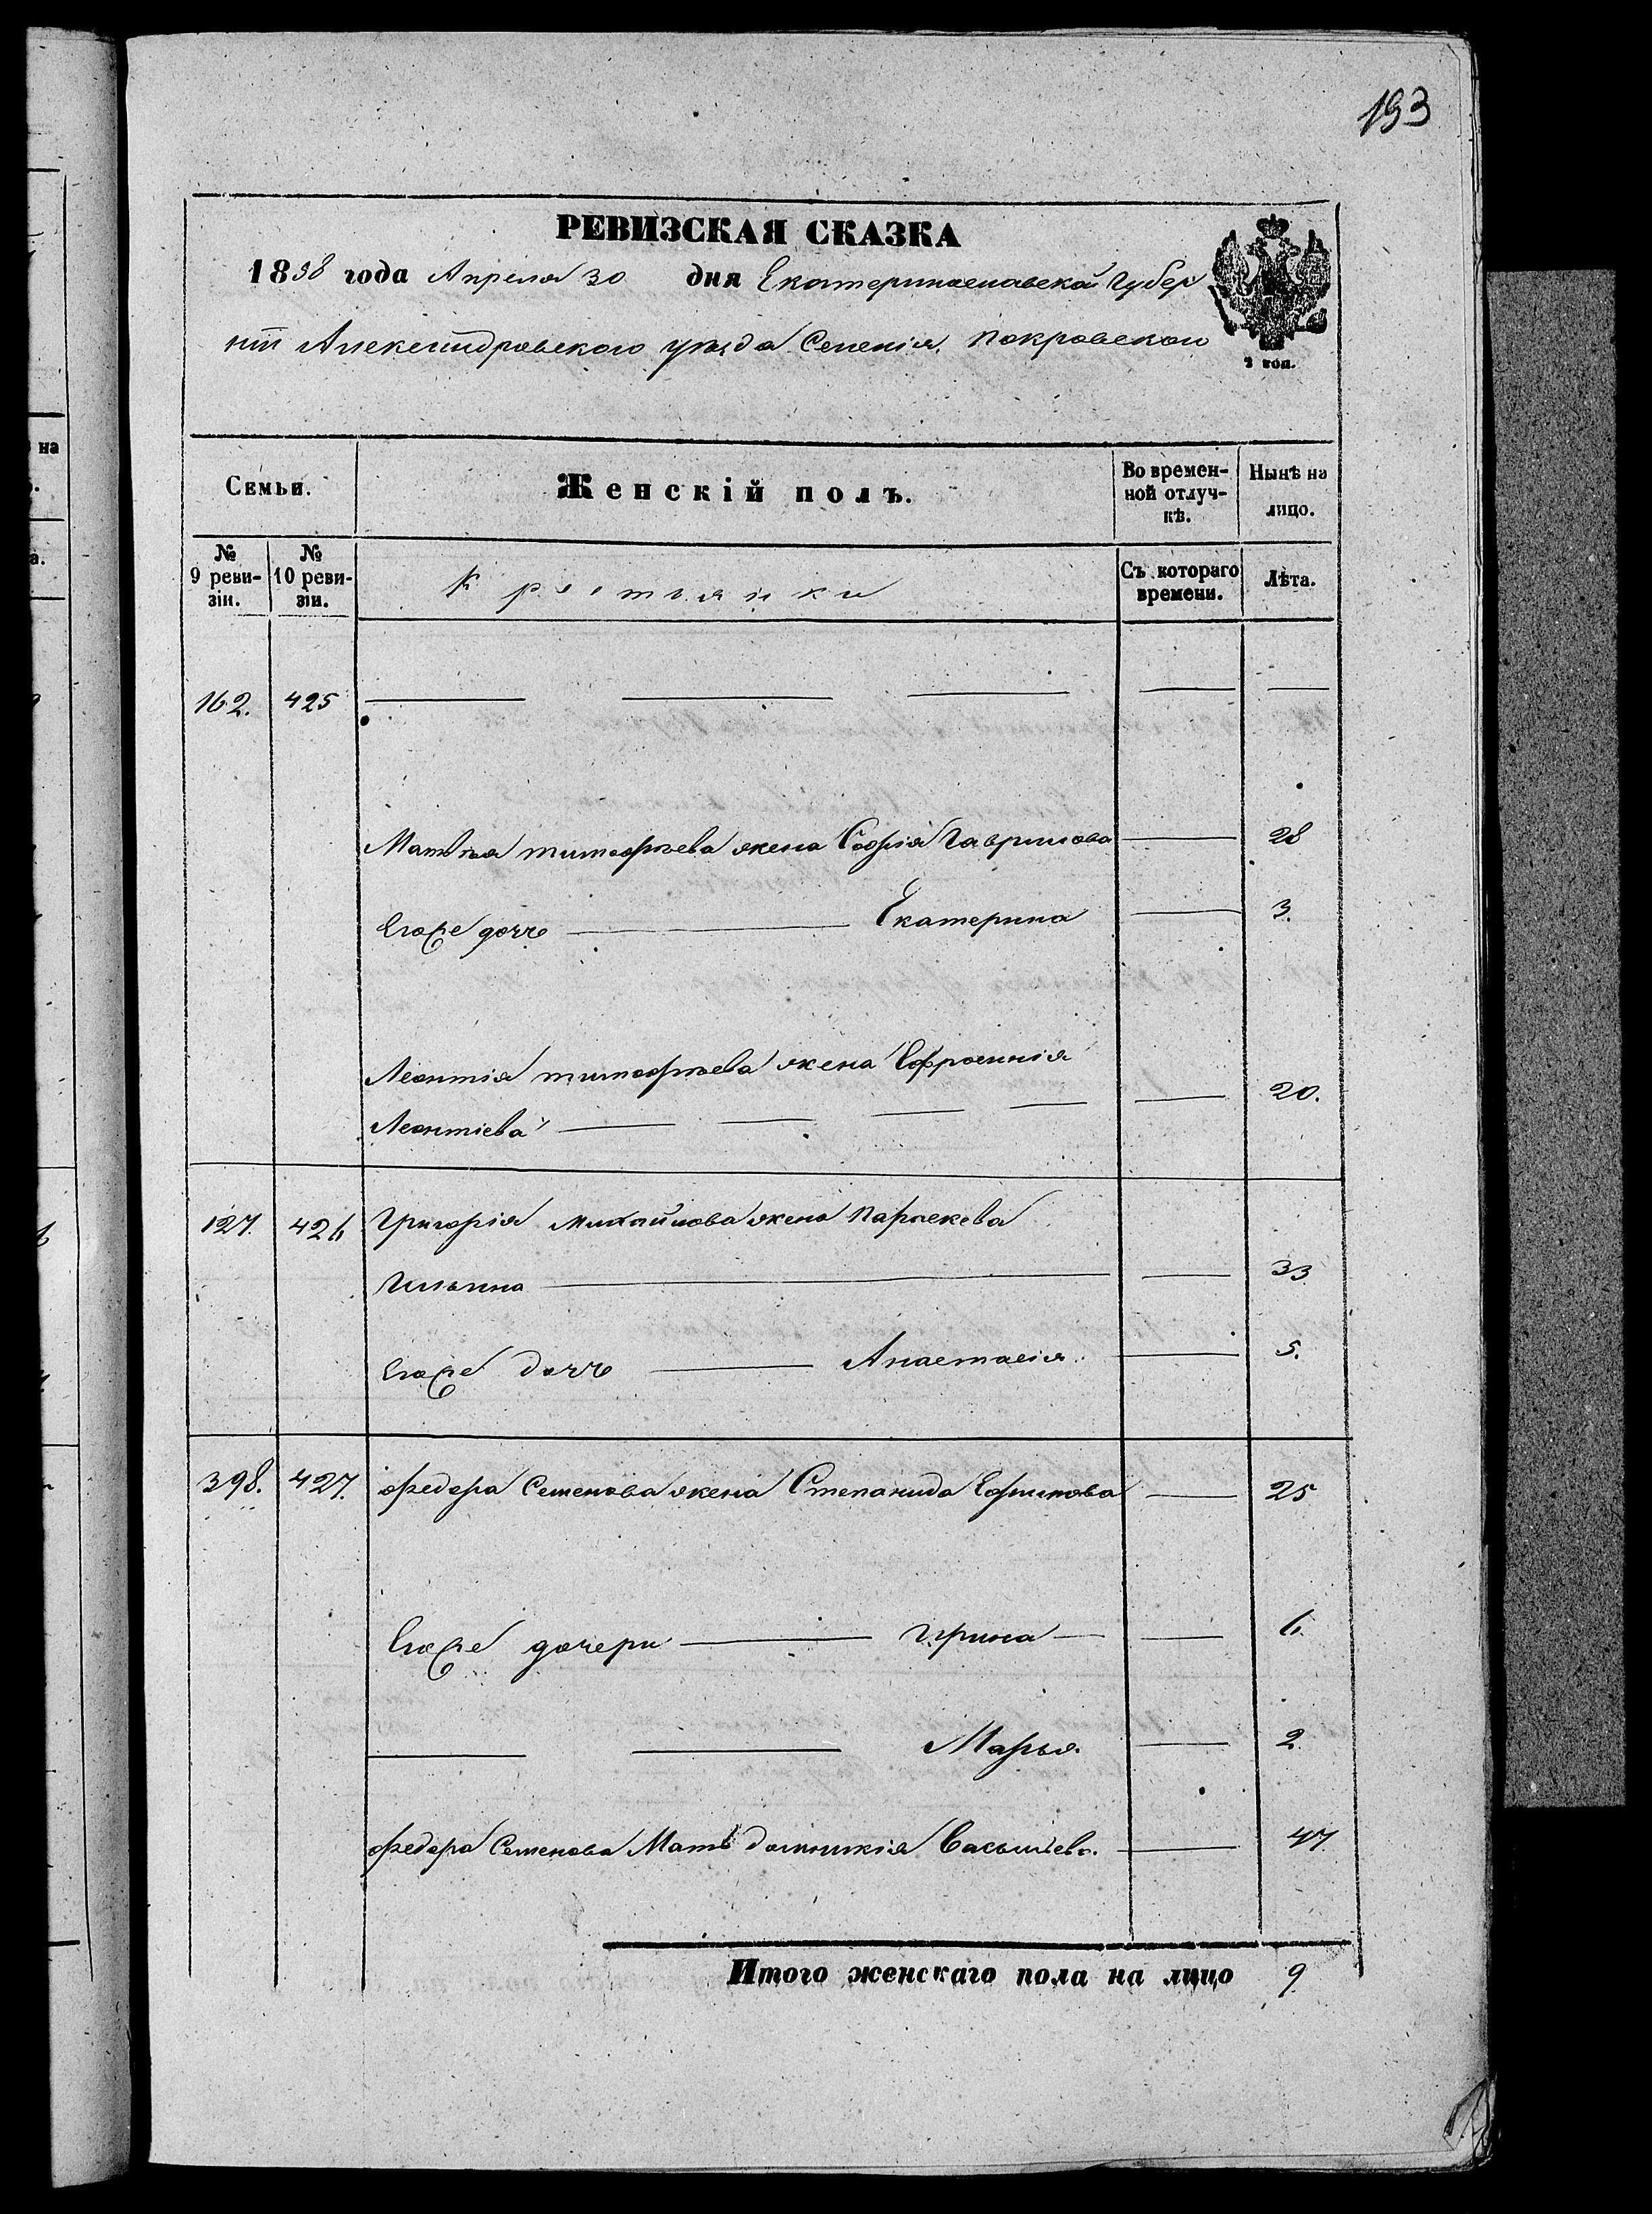 193
РЕВИЗСКАЯ СКАЗКА
1858 года Апреля 30 дня Екатеринославской Губер
нiи Александровского уѣзда Селенiя Покровскои
2 коп.
Семьи. Женскій полъ. Во времен-ной отлуч-кѣ. Нынѣ на лицо.
№ 9 реви-зіи. № 10 реви-зіи. Крестьянки Съ котораго времени. Лѣта.
162. 425 — — — — —
Матвѣя тимофѣева жена Софiя Гаврилова — 28
Егоже дочь — Екатерина — 3.
Леонтiя тимофѣева жена Ефросинiя
Леонтiева — — — — — 20.
127. 426 Григорiя михайлова жена Параскева
Ильина — — 33
Егоже дочь — Анастасiя — 5.
398. 427. федора Семенова жена Степанида Ефимова — 25
Егоже дочери — Ирина — — 6.
— — Марья — 2.
федора Семенова Мать домникiя Васильева — 47.
Итого женскаго пола на лицо 9.
на
а.